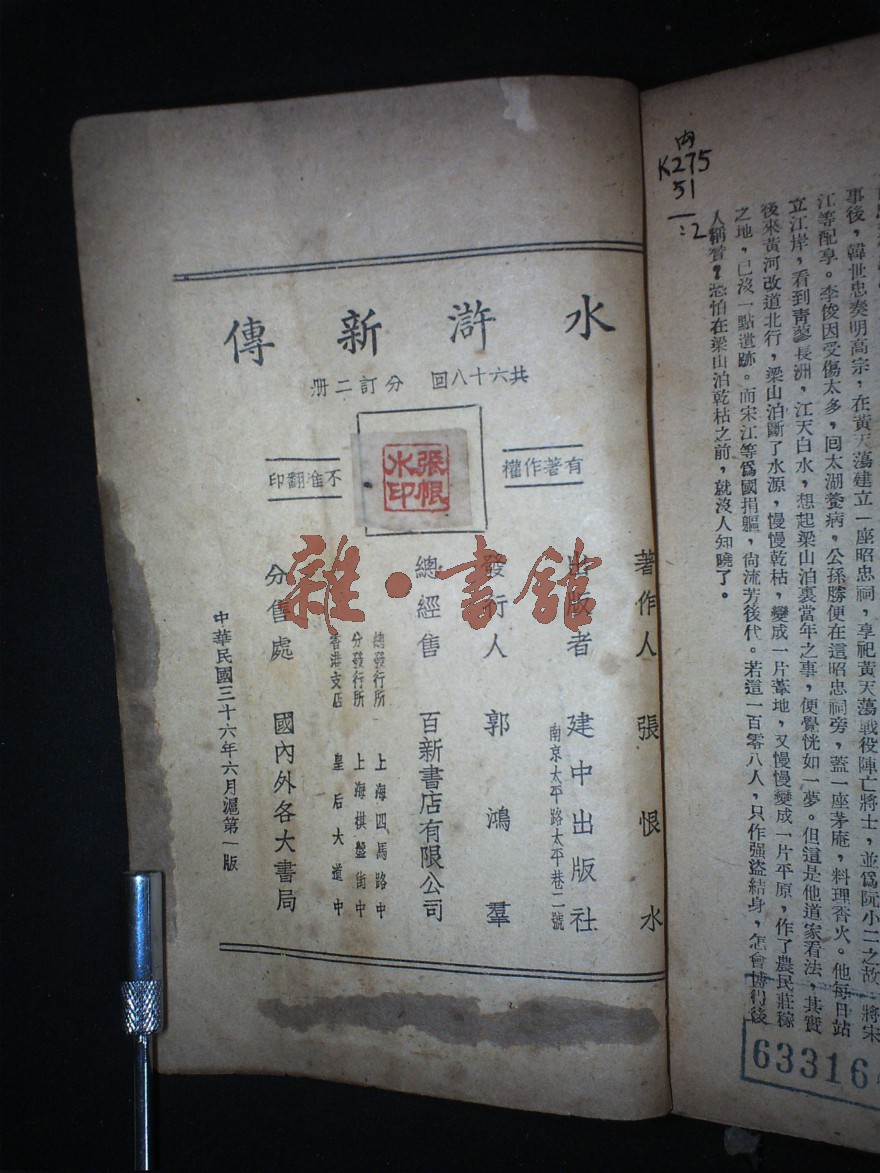 內
K275
51
:2
事後，韓世忠奏明高宗，在黃天蕩建立一座昭忠祠，享祀黃天蕩戰役陣亡將士，並爲阮小二之故，將宋
江等配享。李俊因受傷太多，回太湖養病，公孫勝便在這昭忠祠旁，蓋一座茅庵，料理香火。他每日站
立江岸，看到靑蓼長洲，江天白水，想起梁山泊裏當年之事，便覺恍如一夢。但這是他道家看法，其實
後來黃河改道北行，梁山泊斷了水源，慢慢乾枯，變成一片葦地，又慢慢變成一片平原，作了農民莊稼
之地，已沒一點遺跡。而宋江等爲國捐軀，尙流芳後代。若這一百零八人，只作强盜結身，怎會博得後
人稱贊？恐怕在梁山泊乾枯之前，就沒人知曉了。
63316
水滸新傳
共六十八回 分訂二册
有著作權
不准翻印
張恨水印
著作人 張恨水
出版者 建中出版社
南京太平路太平巷二號
發行人 郭鴻羣
總經售 百新書店有限公司
總發行所 上海四馬路中
分發行所 上海棋盤街中
香港支店 皇后大道中
分售處 國內外各大書局
中華民國三十六年六月滬第一版
雜·書館